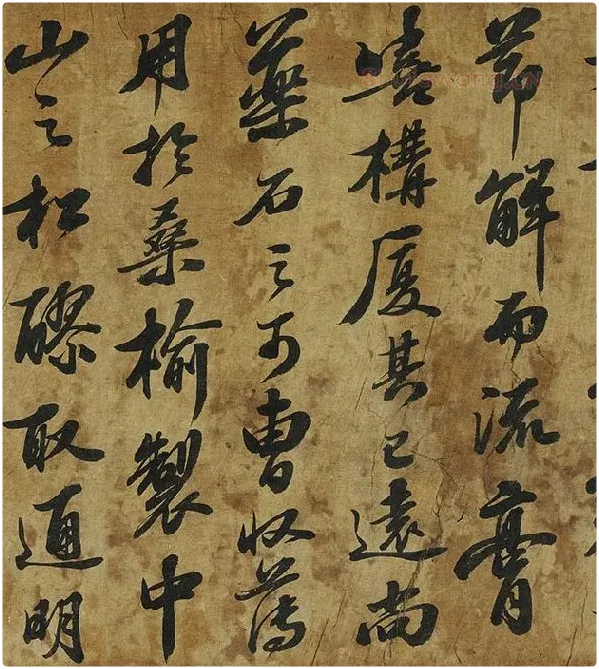 節解而流膏
嘻構厦其已遠尚
藥石之可曹收薄
用於桑榆製中
山之松醪取通明